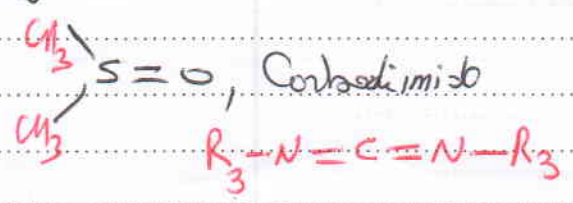 CH3
S=O, Carbodiimido
CH3
R3-N=C=N-R3